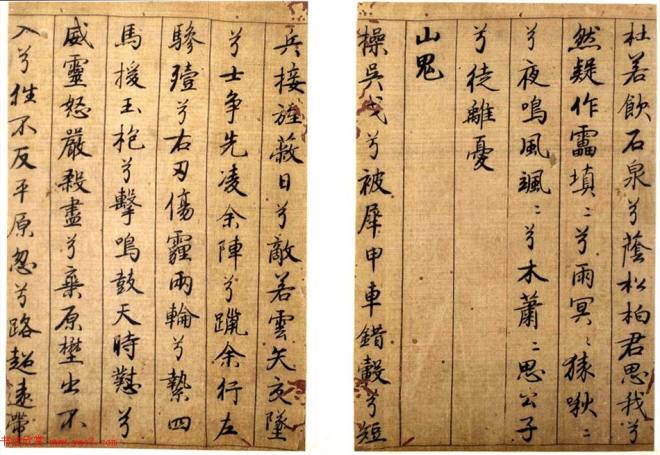 杜若飲石泉兮蔭松柏君思我兮
然疑作靁填〻兮雨冥〻猨啾〻
兮夜鳴風颯〻兮木蕭〻思公子
兮徒離憂
山鬼
操吳戈兮被犀甲車錯轂兮短
兵接旌蔽日兮敵若雲矢交墜
兮士爭先凌余陣兮躐余行左
驂殪兮右刃傷霾兩輪兮縶四
馬援玉枹兮擊鳴鼓天時懟兮
威靈怒嚴殺盡兮棄原壄出不
入兮往不反平原忽兮路超遠帶